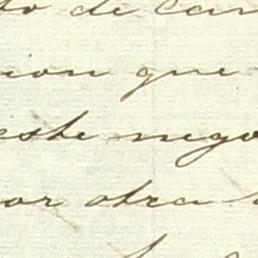 to de can
ion que
este nego
or otra